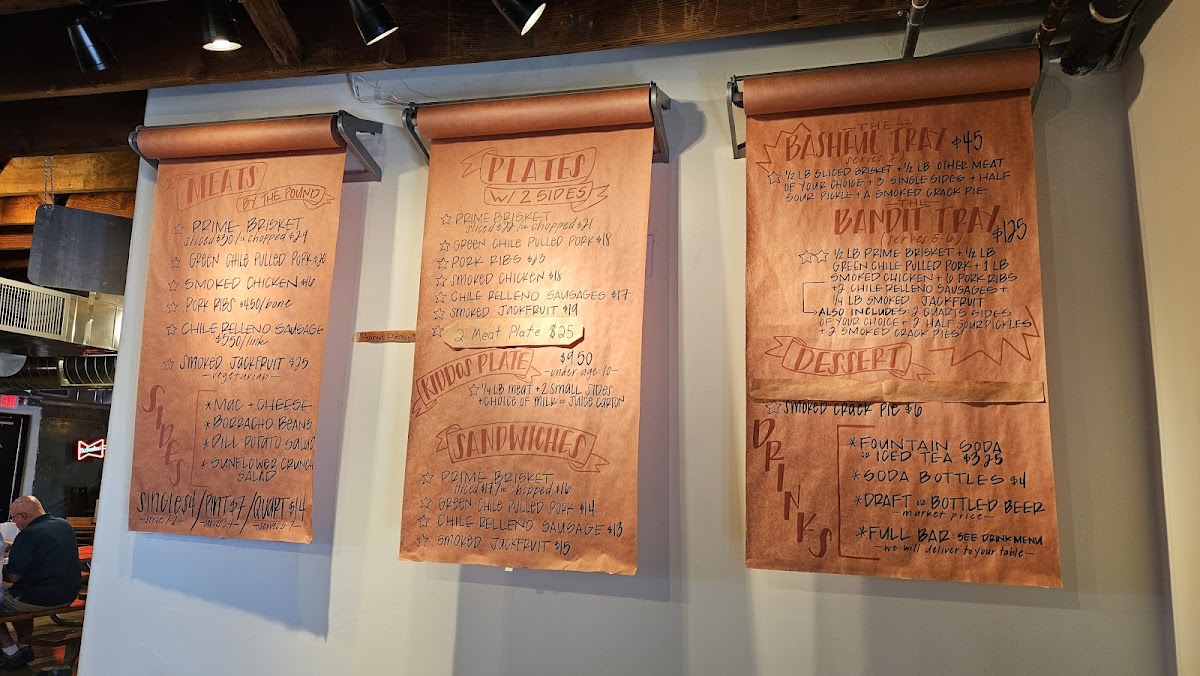 MEATS
BY THE POUND
PRIME BRISKET
sliced $30/or chopped $29
GREEN CHILE PULLED PORK $20
SMOKED CHICKEN $16
PORK RIBS $4.50/bone
CHILE RELLENO SAUSAGE
$5.50/link
SMOKED JACKFRUIT $25
-vegetarian-
SIDES
* MAC + CHEESE
* BORRACHO BEANS
* DILL POTATO SALAD
* SUNFLOWER CRUNCH
SALAD
SINGLE $4/PINT $7/QUART $14
PLATES
W/ 2 SIDES
PRIME BRISKET
sliced $22/or chopped $21
GREEN CHILE PULLED PORK $18
PORK RIBS $23
SMOKED CHICKEN $18
CHILE RELLENO SAUSAGES $17
SMOKED JACKFRUIT $19
2 Meat Plate $25
KIDDOS PLATE
$9.50
-under age 10-
1/4 LB MEAT + 2 SMALL SIDES
+ CHOICE OF MILK or JUICE CARTON
SANDWICHES
PRIME BRISKET
sliced $17/or chopped $16
GREEN CHILE PULLED PORK $14
CHILE RELLENO SAUSAGE $13
SMOKED JACKFRUIT $15
THE
BASHFUL TRAY $45
(serves 2)
1/2 LB SLICED BRISKET + 1/2 LB OTHER MEAT
OF YOUR CHOICE + 3 SINGLE SIDES + HALF
SOUR PICKLE + A SMOKED CRACK PIE
THE
BANDIT TRAY $125
(serves 5-6)
1/2 LB PRIME BRISKET + 1/2 LB
GREEN CHILE PULLED PORK + 1 LB
SMOKED CHICKEN + 6 PORK RIBS
+ 2 CHILE RELLENO SAUSAGES +
1/4 LB SMOKED JACKFRUIT
ALSO INCLUDES: 2 QUARTS SIDES
OF YOUR CHOICE + 2 HALF SOUR PICKLES
+ 2 SMOKED CRACK PIES
DESSERT
SMOKED CRACK PIE $6
DRINKS
* FOUNTAIN SODA
or ICED TEA $3.25
* SODA BOTTLES $4
* DRAFT or BOTTLED BEER
-market price-
* FULL BAR: SEE DRINK MENU
-we will deliver to your table-